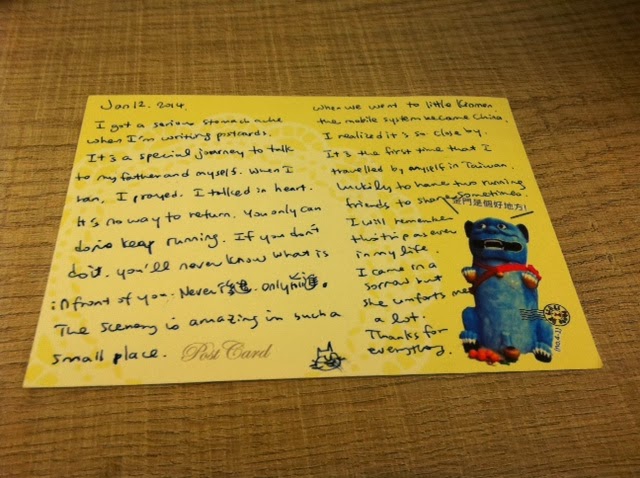 Jan 12. 2014.
I got a serious stomach ache
when I'm writing postcards.
It's a special journey to talk
to my father and myself. When I
ran, I prayed. I talked in heart.
It's no way to return. You only can
do is keep running. If you don't
do it. you'll never know what is
in front of you. Never 退. only 進.
The scenery is amazing in such a
small place.
Post Card
When we went to little Kinmen
the mobile system became China.
I realized it's so close by.
It's the first time that I
travelled by myself in Taiwan.
Luckily to have two running
friends to share sometimes.
金門是個好地方!
I will remember
this trip as ever
in my life.
I came in a
sorrow but
she comforts me
a lot.
Thanks for
everything.